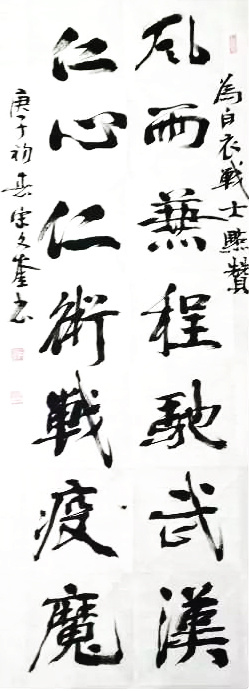 為白衣戰士點贊
風雨兼程馳武漢
仁心仁術戰疫魔
庚子初春